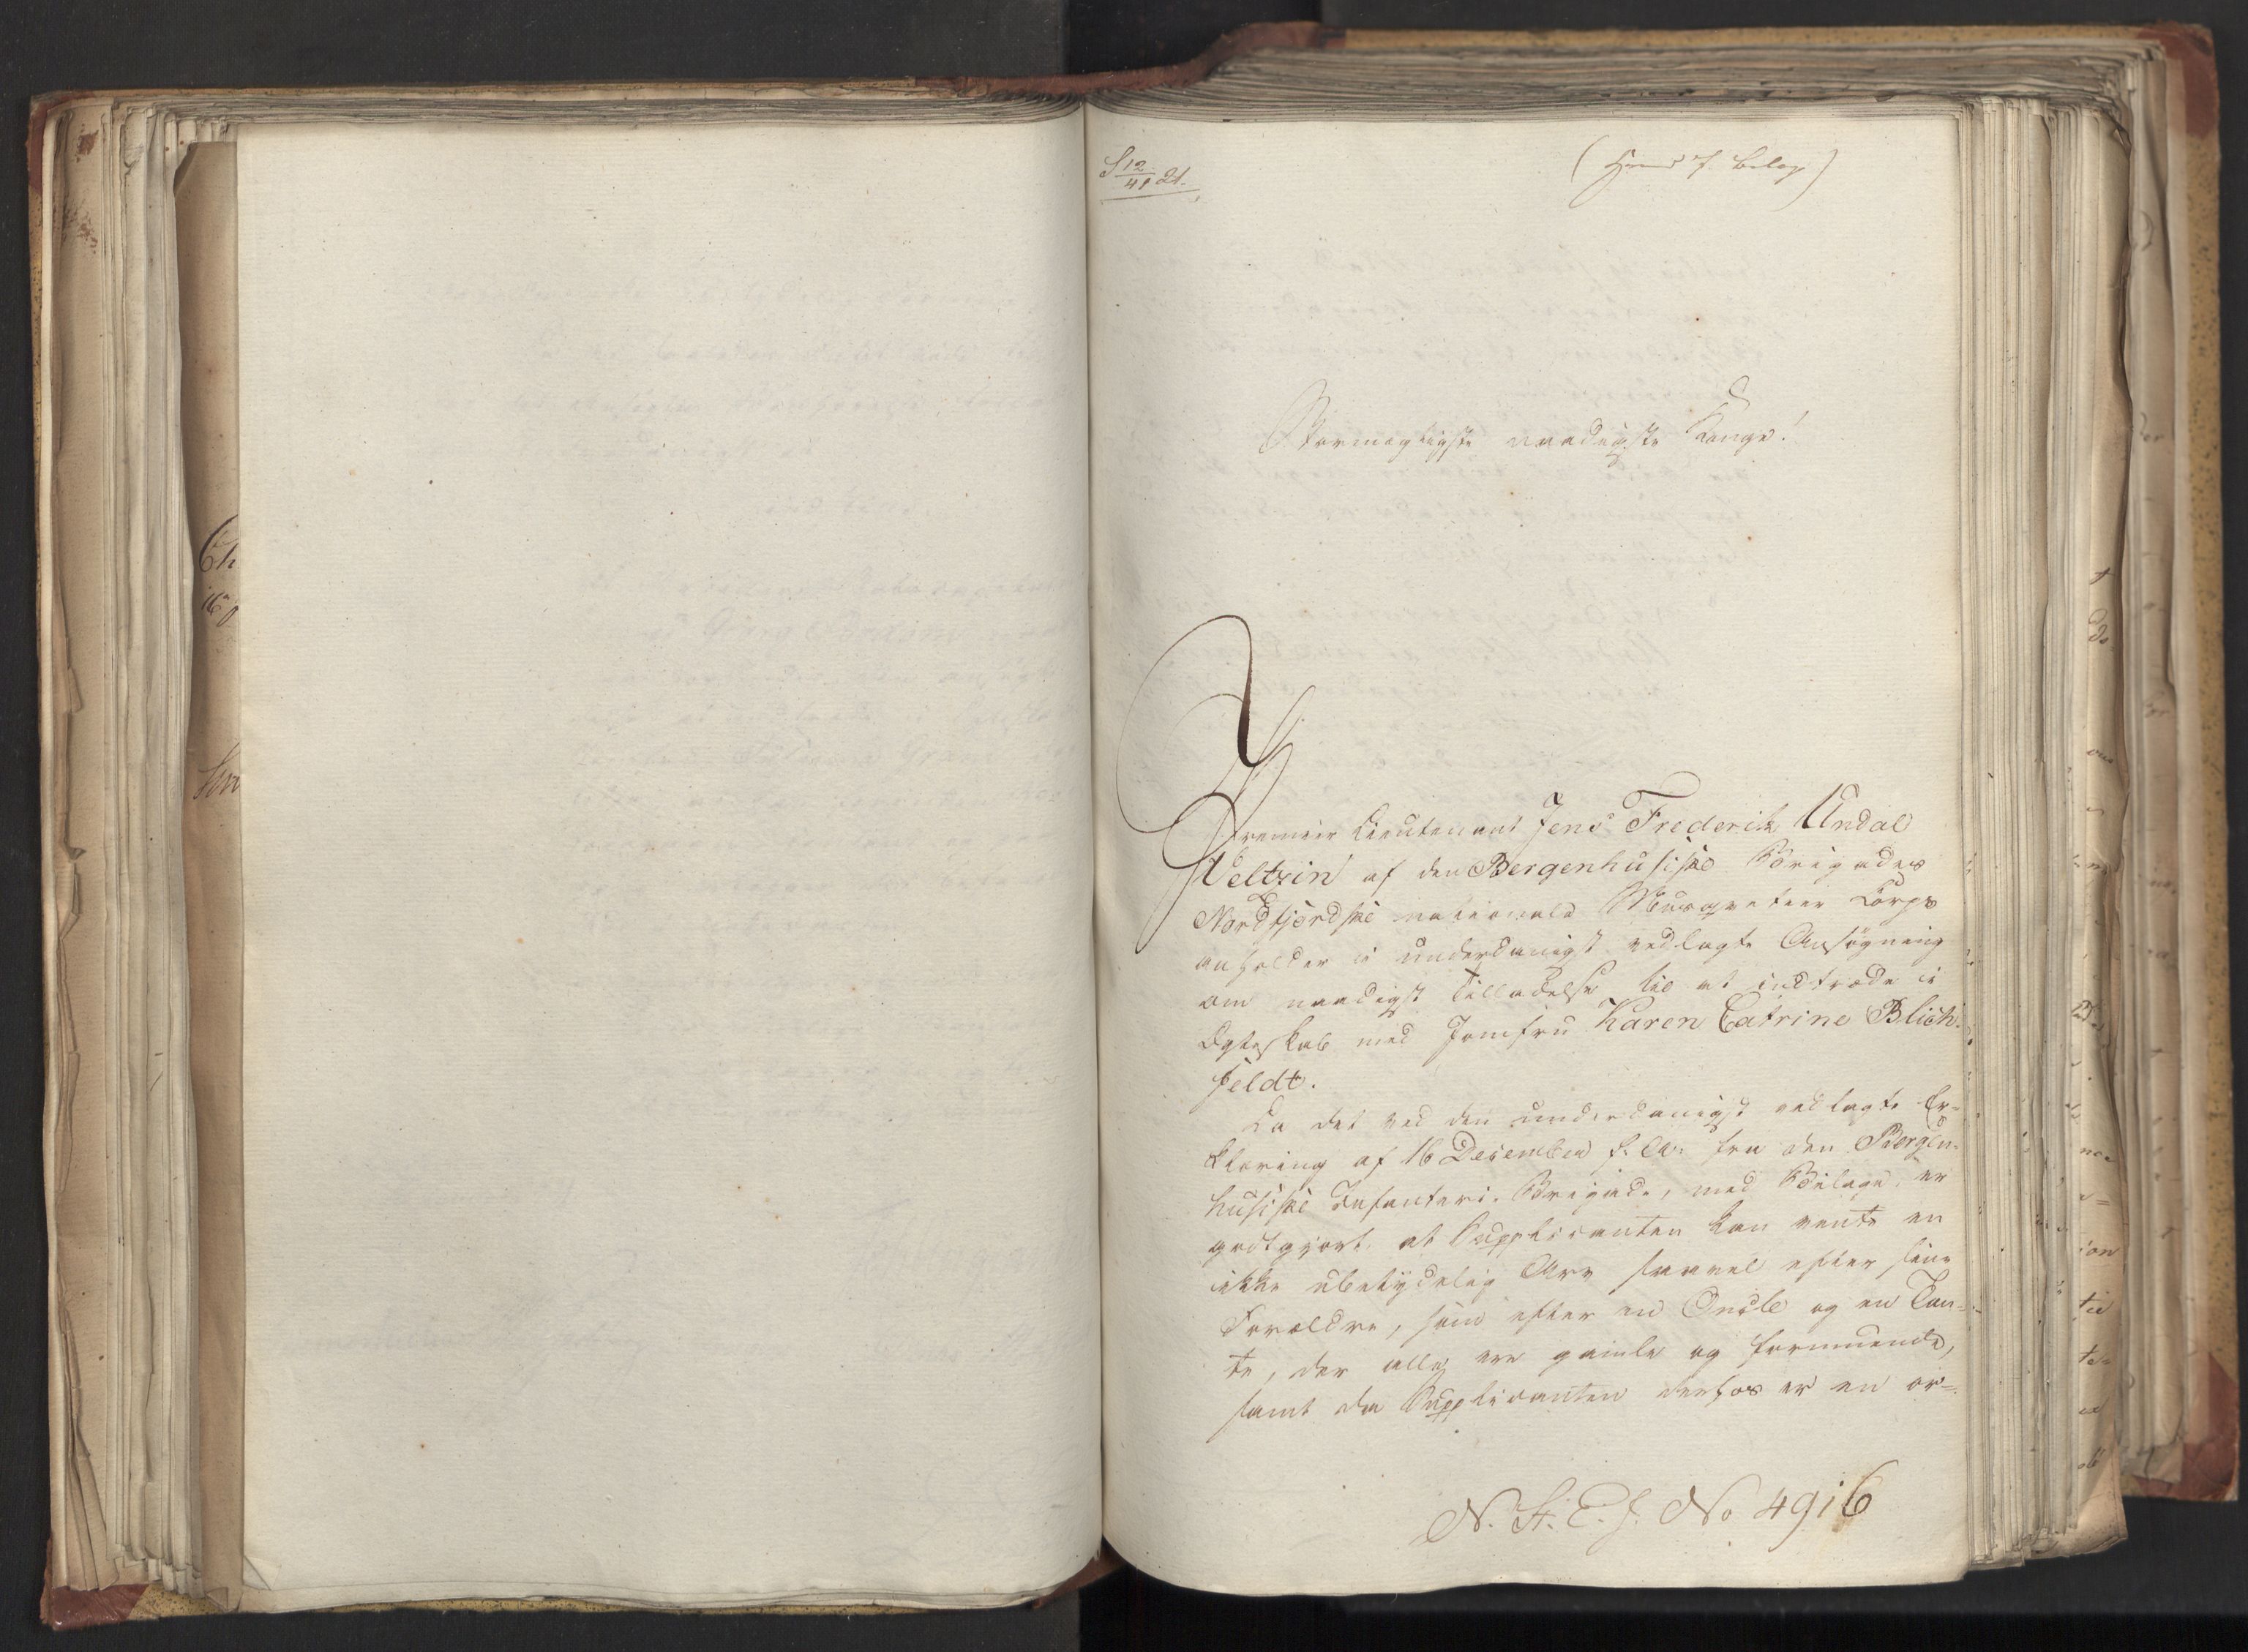 S 12/41 21.
( 7 Belag)
Stormægtigste naadigste Konge!
Premier Lieutenant Jens Frederik Undal
Veltzin af den Bergenhusiske Brigades
Nordfjordske nationale Musqueteer Corps
anholder i underdanigst vedlagte Ansøgning
om naadigst Tilladelse til at indtræde i
Ægteskab med Jomfru Karen Catrine Blich-
feldt.
Da det ved den underdanigst vedlagte Er-
klæring af 16 Desember f. A. fra den Bergen-
husiske Infanteri-Brigade, med Bilage, er
godtgjort, at Supplicanten kan vente en
ikke ubetydelig Arv saavel efter sine
Forældre, som efter en Oncle og en Tan-
te, der alle ere gamle og formuende,
samt da Supplicanten derhos er en or-
N. St. E. J. No 4916
Ch
16